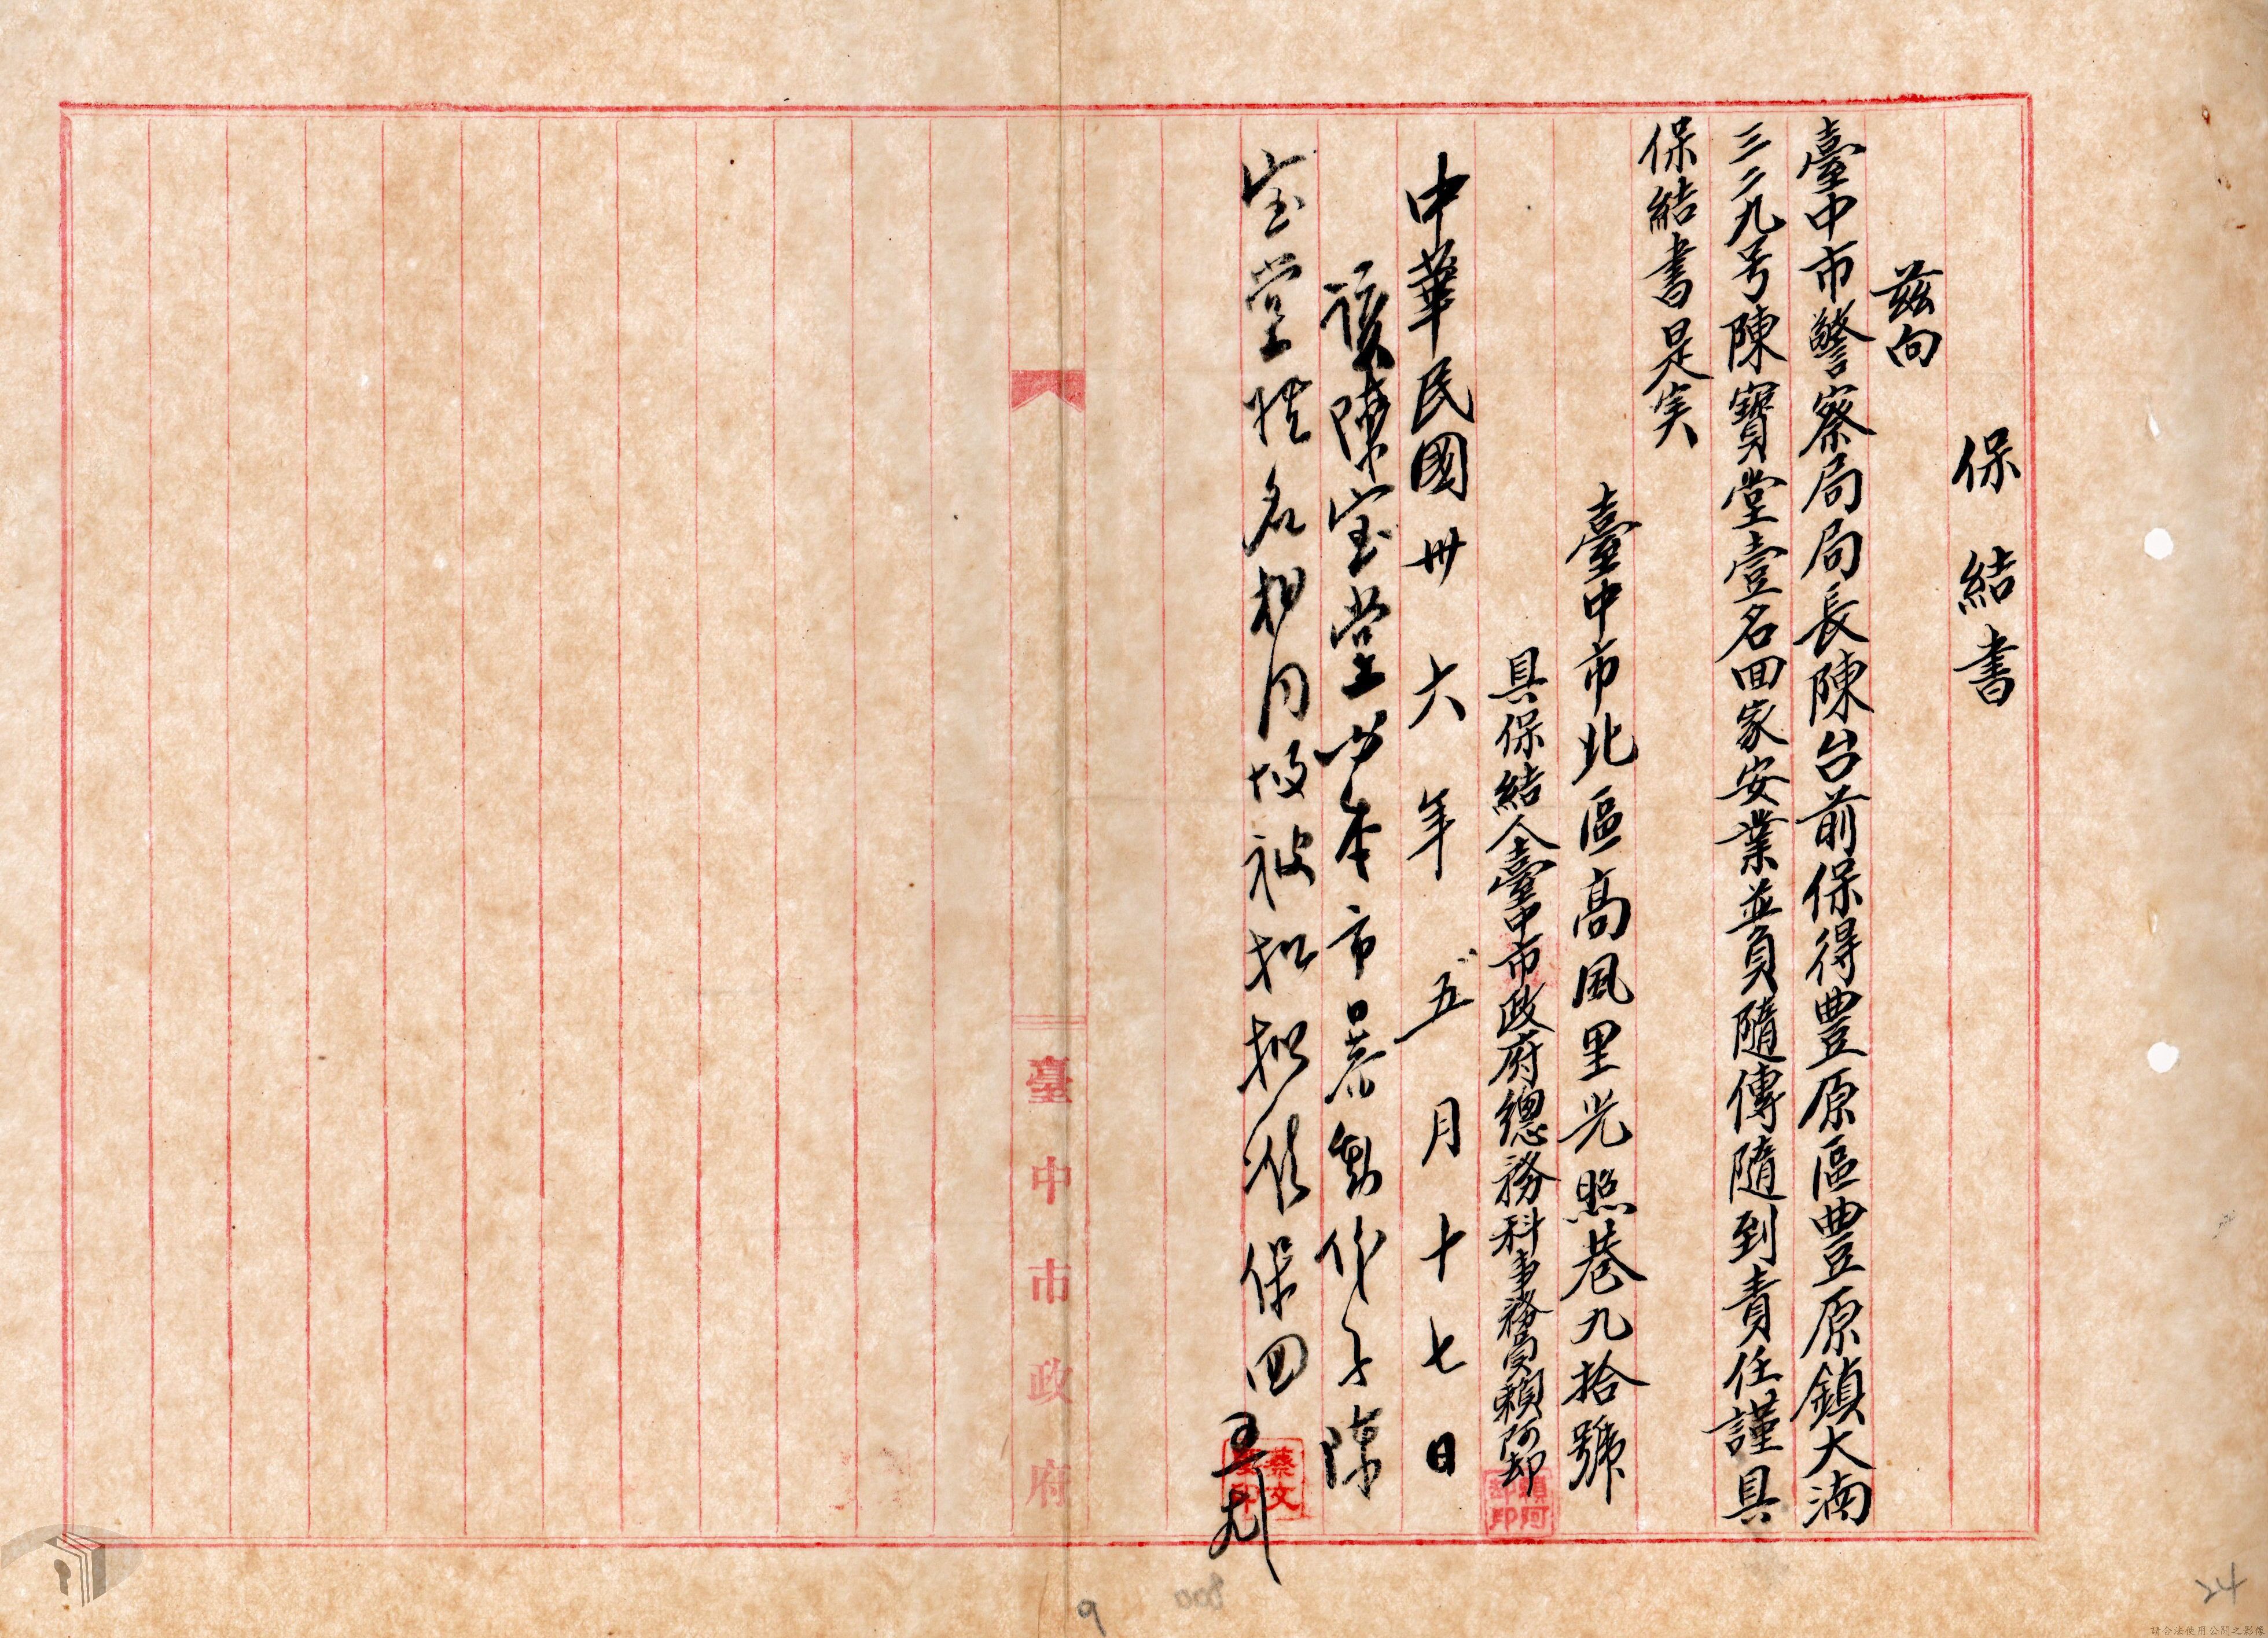 保結書
茲向
臺中市警察局局長陳台前保得豐原區豐原鎮大湳
三二九号陳寶堂壹名回家安業並負隨傳隨到責任謹具
保結書是実
臺中市北區高風里光照巷九拾號
具保結人臺中市政府總務科事務員賴阿却
賴阿却印
中華民國卅六年五月十七日
該陳宝堂與本市暴動份子陳
宝堂姓名相同故被扣擬准保回
五、九
蔡文
臺中市政府
9
008
24
請合法使用公開之影像